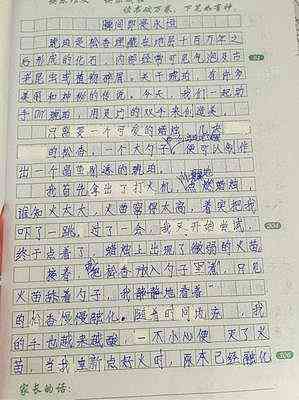 读书破万卷,下笔如有神
瞬间即是永恒
琥珀是松香埋藏在地层千百万年之
后形成的化石,内部经常可见气泡及古
老昆虫或植物碎屑。关于琥珀,有许多
美丽和神秘的传说。今天,我们一起动
手DIY琥珀,用灵巧的双手来创造美。
只需要一个可爱的蜡烛,几克
的松香,一个大勺子,便可以制作
出一个晶莹剔透的琥珀。
我首先拿出了打火机,点燃蜡烛,
谁知火太大,火苗窜得太高,着实把我
吓了一跳,过了一会,我又开始尝试,
终于点着了,蜡烛上出现了微弱的火苗。
接着,把松香放入勺子里煮,只见
火苗舔着勺子,我静静地看着
的松香慢慢融化。随着时间流逝,我
的手也越来越酸,一不小心便灭了火
苗,当我重新点好火时,原本已经融化
家长的话: